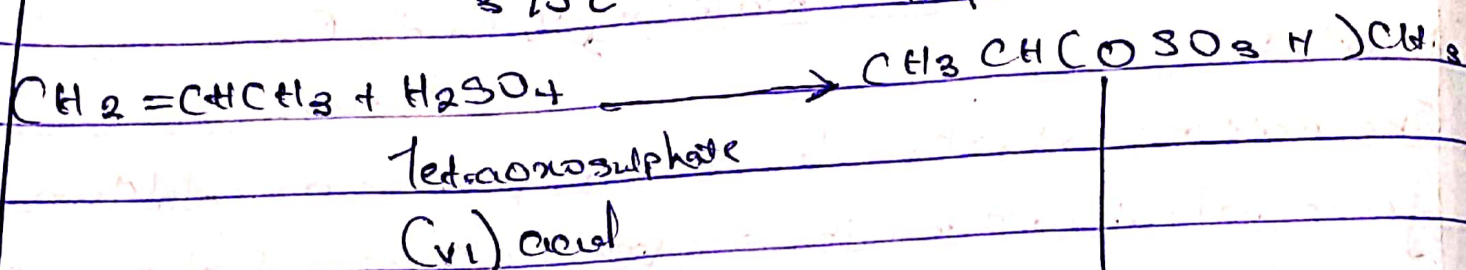 CH2=CHCH3 + H2SO4 → CH3CH(OSO3H)CH3
Tetraoxosulphate
(vi) acid